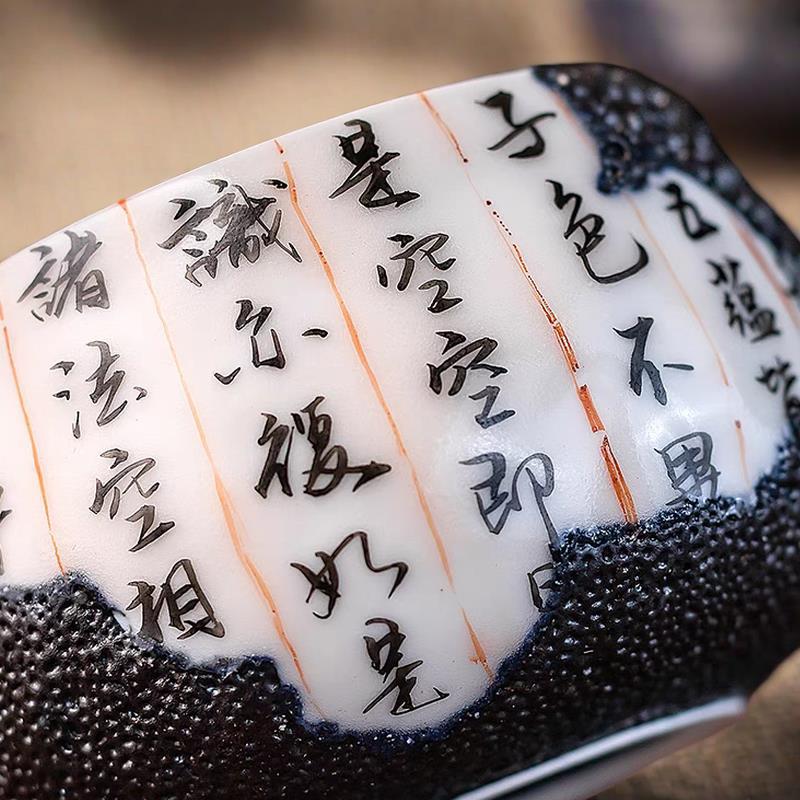 五蘊皆
子色不異
是空空即
識亦復如是
諸法空相